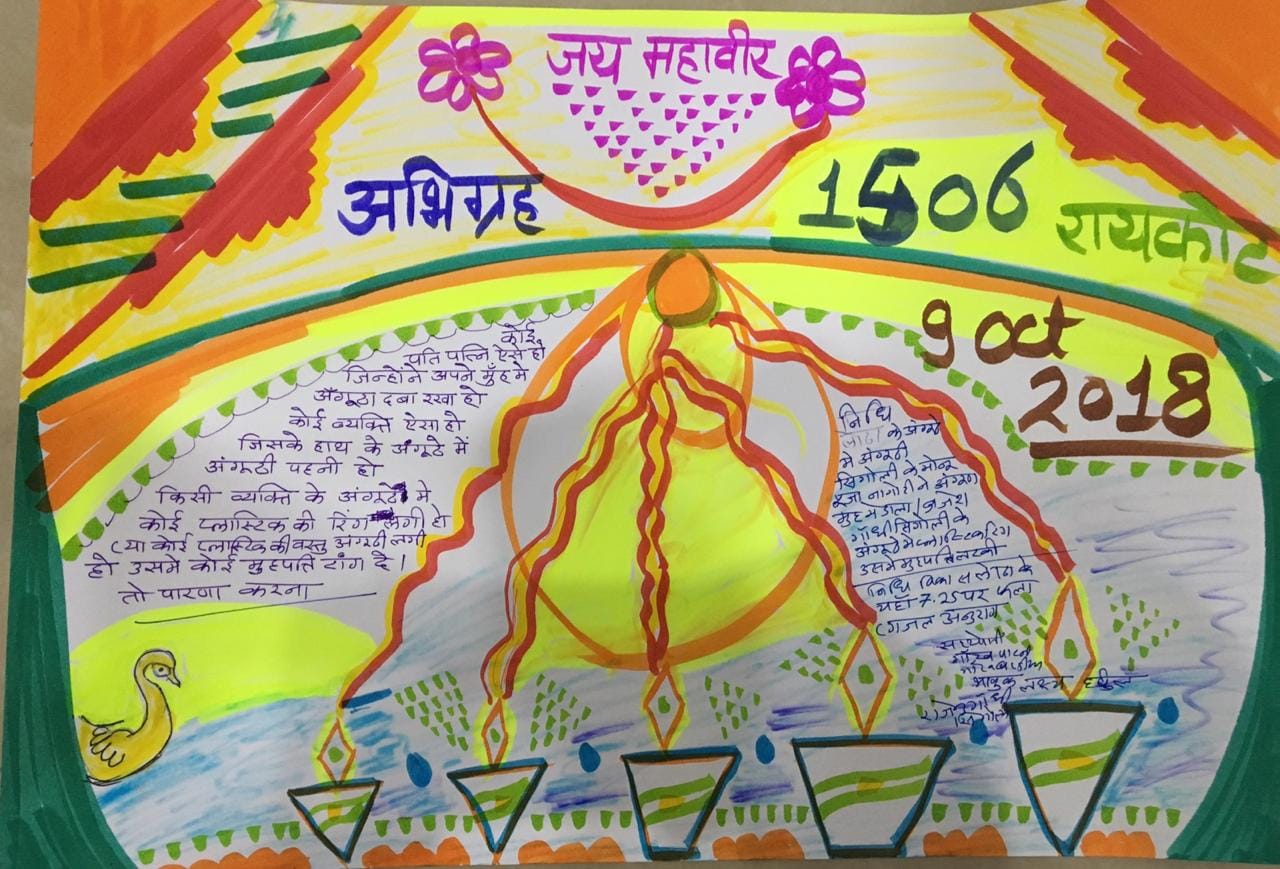 जय महावीर
अभिग्रह
1506
रायकोट
9 oct
2018
कोई
पति पत्नि ऐसे हो
जिन्होंने अपने मुँह मे
अँगूठा दबा रखा हो
कोई व्यक्ति ऐसा हो
जिसके हाथ के अंगूठे में
अंगूठी पहनी हो
किसी व्यक्ति के अंगूठे मे
कोई प्लास्टिक की रिंग लगी हो
(या कोई प्लास्टिक की वस्तु अंगूठी लगी
हो उसमे कोई मुहपति टांग दे।
तो पारणा करना
निधि
लोढा के अंगूठे
मे अंगूठी
सिंगोली के मोनू
पूजा नागोरी ने अंगूठा
मुह मे डाला
गाँधी सिंगोली के
अंगूठे मे प्लास्टिक रिंग
उसमे मुहपति लटकी
निधि विकास लोढा के
यहाँ 7.25 पर फला
(गजल अनुराग